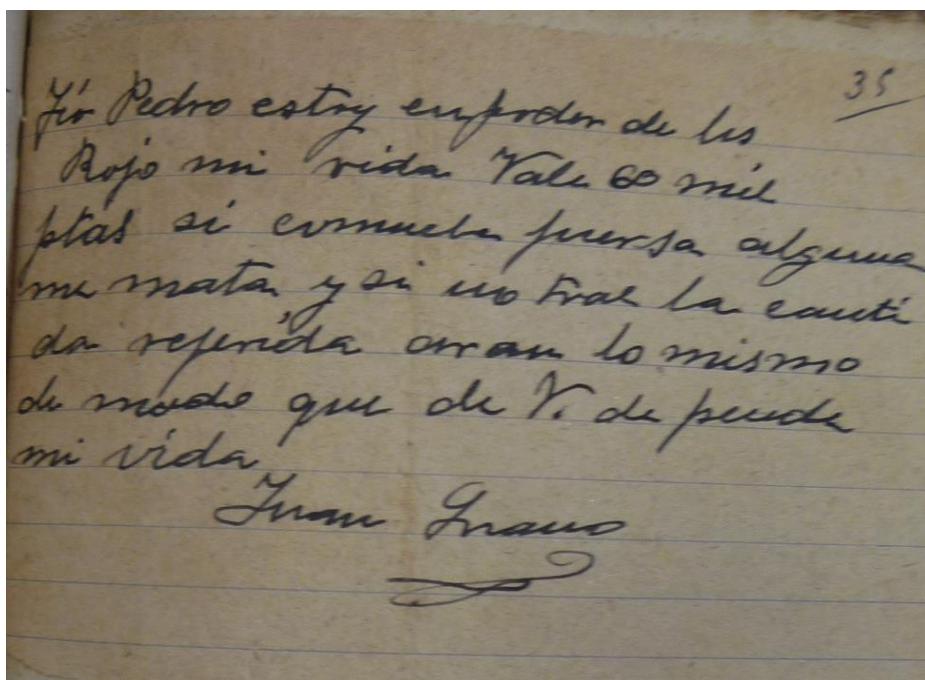 35
Tío Pedro estoy en poder de los
Rojo mi vida Vale 60 mil
ptas si comueben fuersa alguna
me matan y si no trae la canti
da referida aran lo mismo
de modo que de V. de pende
mi vida
Juan